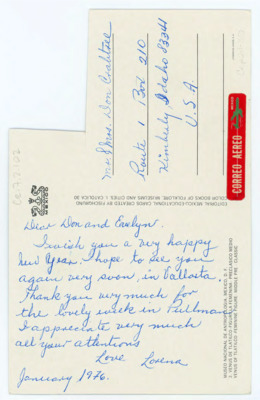 Mr & Mrs. Don Crabtree
Route 1 Box 210
Kimberly, Idaho 83341
U.S.A.
CORREO-AEREO
MEXICO
Dear Don and Evelyn.
I wish you a very happy
New Year. I hope to see you
again very soon, in
Thank you very much for
the lovely week in Pullman
I appreciate very much
all your attentions
Love Lorena
January 1976.
EDITORIAL MEXICO-EDUCATIONAL CARDS CREATED BY
BOOKS OF FOLKLORE, MUSEUMS AND CITIES.
MUSEO NACIONAL DE ANTROPOLOGIA, MEXICO, D.F.
VENUS DE TLATILCO: FIGURA FEMENINA. PRECLASICO MEDIO
VENUS OF TLATILCO: FEMININE FIGURE. MIDDLE PRE CLASSIC